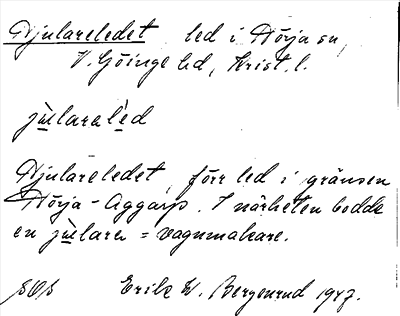 Djulareledet led i Nörja sn,
V. Göinge hd, Krist. l.
jùlaralèd
Djulareledet, förr led i gränsen
Nörja - Aggarp. I närheten bodde
en jùlare = vagnmakare.
SOS Erik W. Bergenrud 1947.